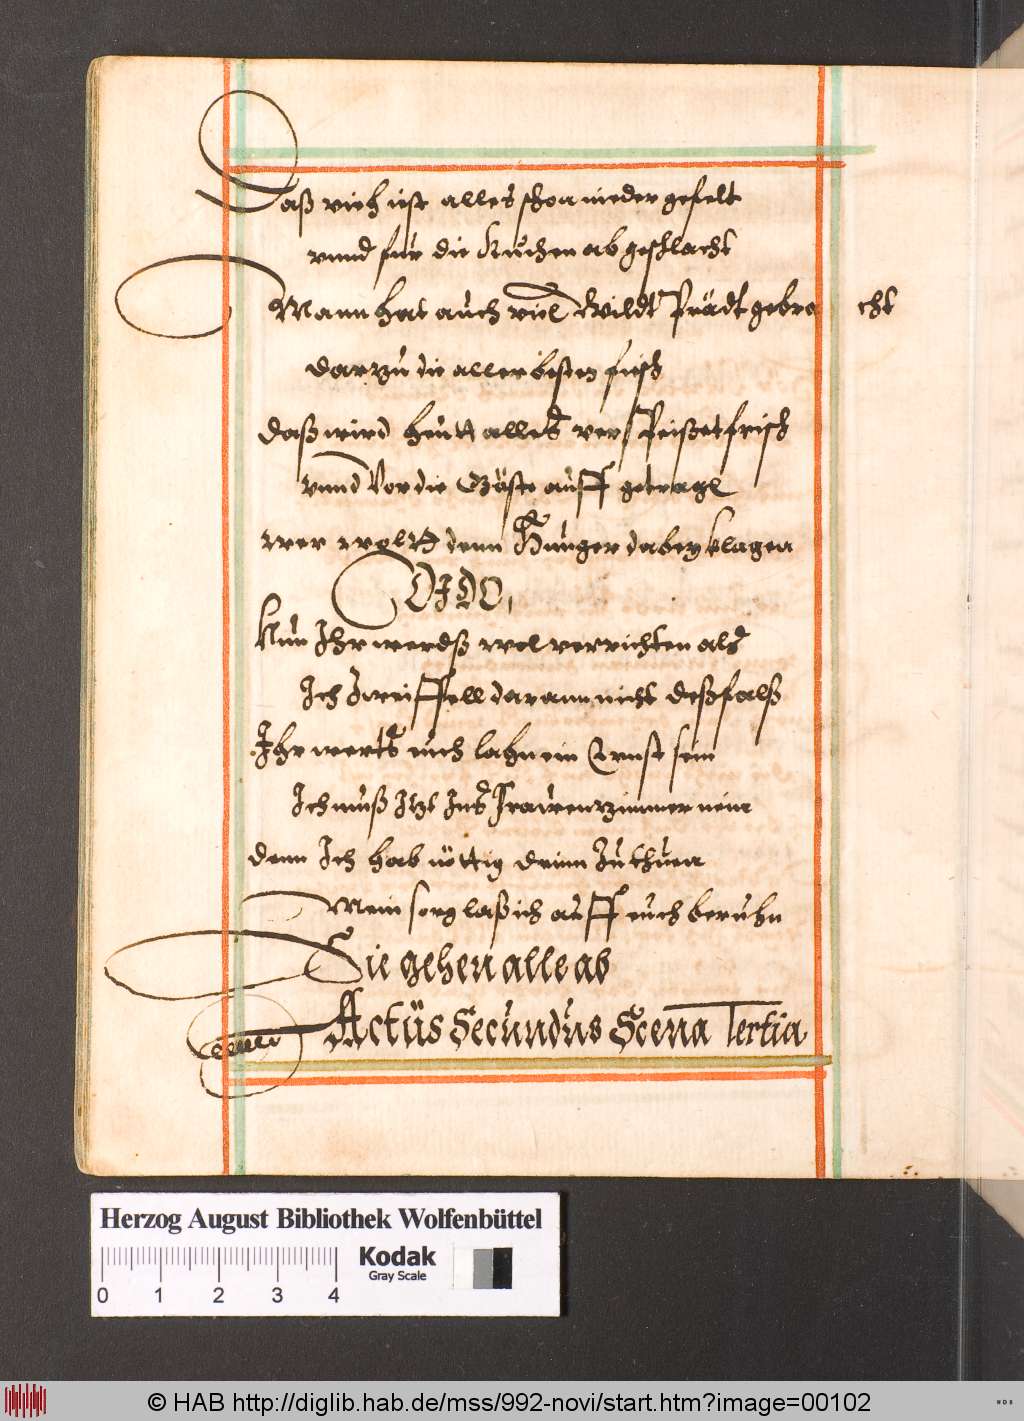 Daß vieh ist alles schon nieder gefelt
vnnd für die Kuchen abgeschlacht
Mann hat auch viel Wildt Prädt gebracht
darzu die aller besten fisch
daß wird heutt alleß ver speißet frisch
vnnd vor die Gäste auff getragen
wer wollt denn Hunger dabey klagen
DIDO,
Nun Ihr werdß wol verrichten alß
Ich Zweiffell darann nicht deßfalß
Ihr werts euch laßn ein Ernst sein
Ich muß Itzt Ins Frauenzimmer nein
denn Ich hab nöttig drinn Zu thuen
Mein sorg laß ich auff euch beruhn
Sie gehen alle ab
Actus Secundus Scena Tertia
Herzog August Bibliothek Wolfenbüttel
Kodak
Gray Scale
0 1 2 3 4
© HAB http://diglib.hab.de/mss/992-novi/start.htm?image=00102